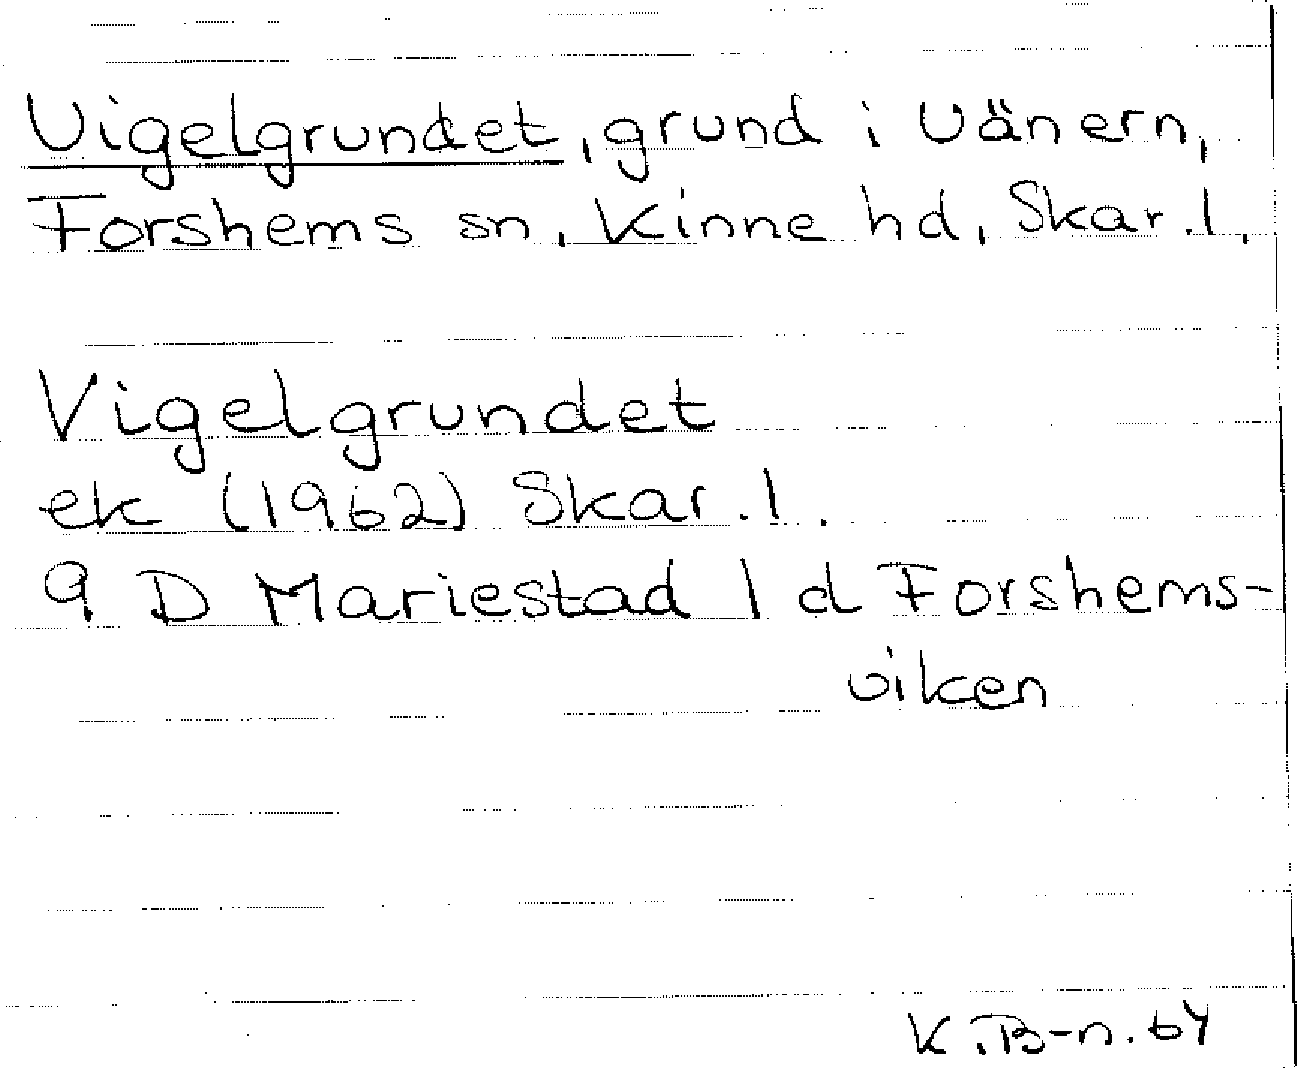 Vigelgrundet, grund i Vänern,
Forshems sn, Kinne hd, Skar. l,
Vigelgrundet
ek (1962) Skar. l.
9 D Mariestad 1 d Forshems-
viken
K. B-n. 64